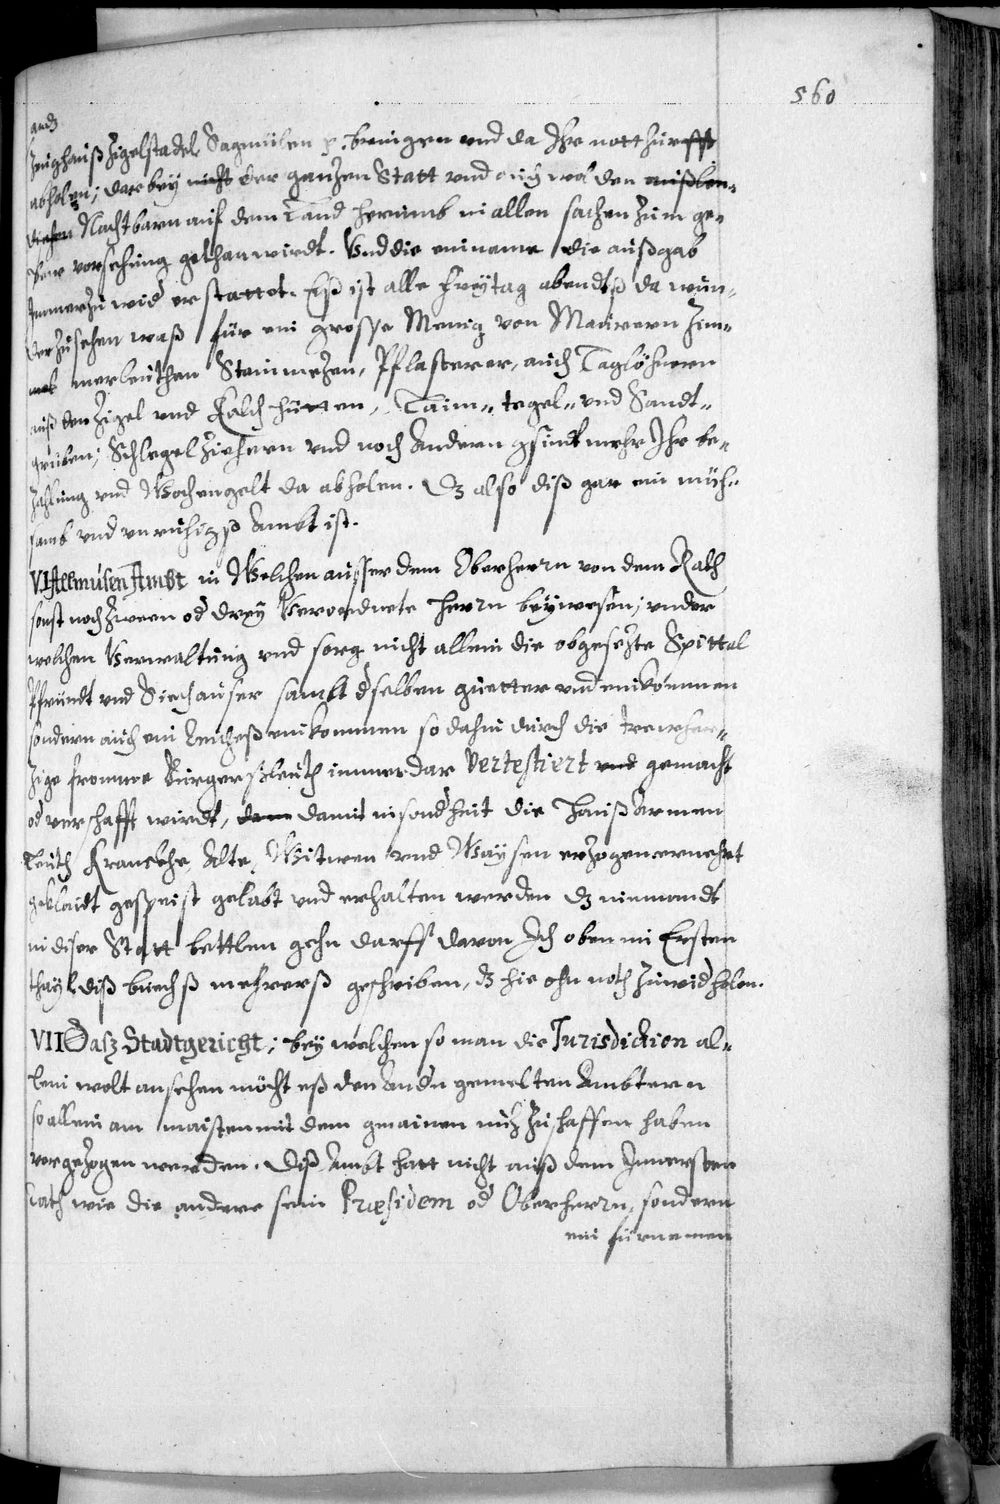 560
and
Zeughauß Zigelstadel Sagmülen p. bringen vnd da Ihr notthurfft
abholen; darbey nicht der ganzen Statt vnd auch wol den
Nachtbarn auf dem Land herumb in allen sachen zum ge-
vorsehung gethan wirdt. Vnd die einname die außgab
Immerzu wid erstattet. Eß ist alle Freytag abendtß da wun-
der zusehen waß für ein grosse Menig von Maürern Zim-
merleuthen Steinmezen, Pflasterer, auch Taglöhnern
auß den Zigel vnd Kalch hütten, Laim- tegel- vnd Sandt-
gruben; Schlegel Ziehern vnd noch Andern gsindt mehr Ihr be-
zahlung vnd Wochengelt da abholen. Dz also diß gar ein müh-
samb vnd vnruhigß Ambt ist.
VI Allmusen Ambt in Welchen ausser dem Oberherrn von dem Rath
sonst noch Zween od drey Verordnete herrn beywesen; vnder
welchen Verwaltung vnd sorg nicht allein die obgesezte Spittal
Pfründt vnd Siechheuser sambt dselben guetter vnd einkommen
sondern auch ein Reicheß einkommen so dahin durch die trewher-
zige fromme Burgersleuth immerdar vertestiert vnd gemacht
od verschafft wirdt, dann damit insondheit die Hauß Armen
Leuth Kranckhe, Alte, Witwen vnd Waysen erzogen ernehrt
geklaidt gespeist gelabt vnd erhalten werden dz niemandt
in diser Statt bettlen gehn darff davon Ich oben im Ersten
thayl diß buechß mehrerß geschriben, dz hie ohn noth zuwidholen.
VII Dasz Stadtgericht; bey welchen so man die Jurisdiction al-
lein wolt ansehen möcht eß den Andn gemelten Ambtern
so allein am maisten mit dem gmainen nuz zuschaffen haben
vorgezogen werden. Diß Ambt hatt nicht auß dem Innersten
Rath wie die andere sein Præsidem od Oberherrn, sondern
ein fürnemen